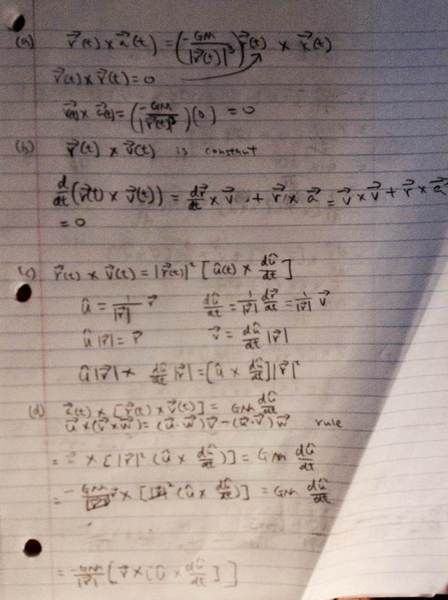 (a) r⃗(t) × a⃗(t) = (-GM / |r⃗(t)|³) r⃗(t) × r⃗(t)
r⃗(t) × r⃗(t) = 0
r⃗(t) × a⃗(t) = (-GM / |r⃗(t)|³)(0) = 0
(b) r⃗(t) × v⃗(t) is constant
d/dt (r⃗(t) × v⃗(t)) = dr⃗/dt × v⃗ + r⃗ × a⃗ = v⃗ × v⃗ + r⃗ × a⃗
= 0
(c) r⃗(t) × v⃗(t) = |r⃗(t)|² [û(t) × dû/dt]
û = 1/|r⃗| r⃗ dû/dt = 1/|r⃗| dr⃗/dt = 1/|r⃗| v⃗
û|r⃗| = r⃗ v⃗ = dû/dt |r⃗|
û|r⃗| × dû/dt |r⃗| = [û × dû/dt] |r⃗|²
(d) a⃗(t) × [r⃗(t) × v⃗(t)] = GM dû/dt
u⃗ × (v⃗ × w⃗) = (u⃗ · w⃗)v⃗ − (u⃗ · v⃗)w⃗ rule
= a⃗ × [|r⃗|² (û × dû/dt)] = GM dû/dt
= -GM r⃗ × [|r⃗|² (û × dû/dt)] = GM dû/dt
= -GM/|r⃗| [r⃗ × [û × dû/dt]]